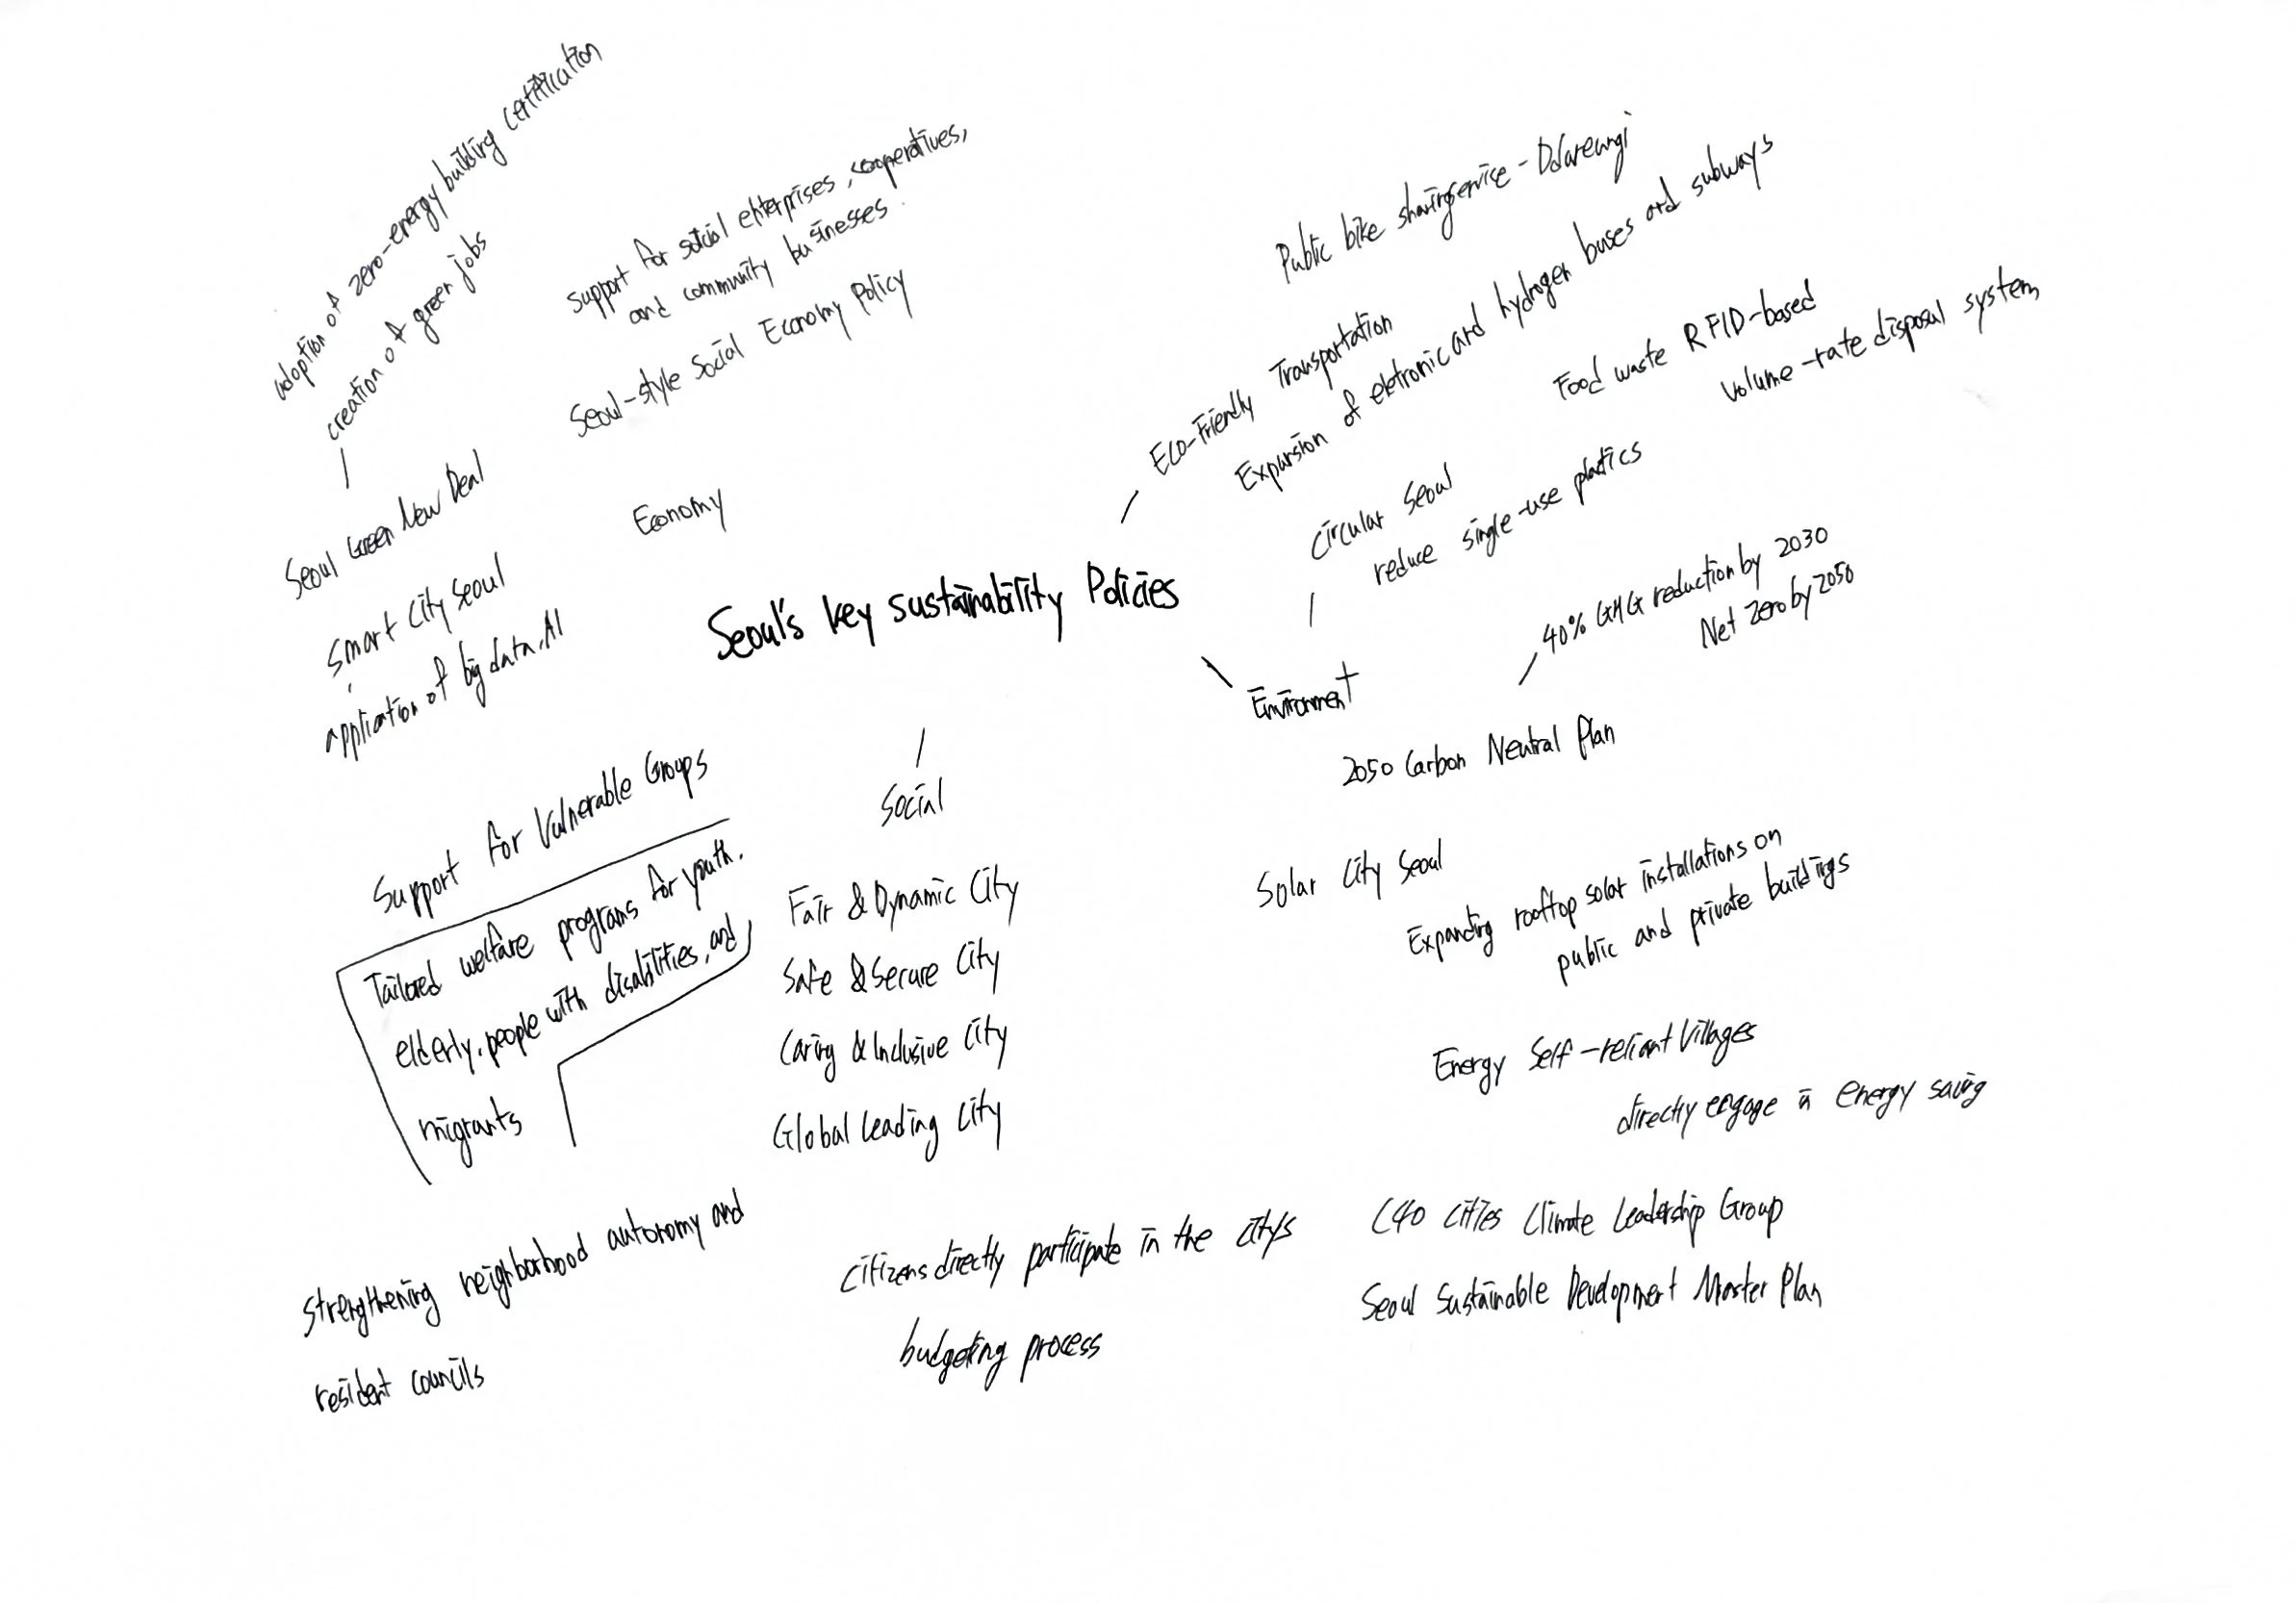 adoption of zero-energy building certification
creation of green jobs
Seoul Green New Deal
Smart City Seoul
application of big data, AI
support for social enterprises, cooperatives,
and community businesses
Seoul-style Social Economy Policy
Economy
Seoul's key sustainability Policies
Public bike sharing service - Ddareungi
Eco-Friendly Transportation
Expansion of eletronic and hydrogen buses and subways
Food waste RFID-based
volume-rate disposal system
Circular Seoul
reduce single-use plastics
40% GHG reduction by 2030
Net zero by 2050
Environment
2050 Carbon Neutral Plan
Solar City Seoul
Expanding rooftop solar installations on
public and private buildings
Energy Self-reliant Villages
directly engage in energy saving
C40 Cities Climate Leadership Group
Seoul Sustainable Development Master Plan
Social
Fair & Dynamic City
Safe & Secure City
Caring & Inclusive City
Global Leading City
Citizens directly participate in the city's
budgeting process
Support for Vulnerable Groups
Tailored welfare programs for youth,
elderly, people with disabilities, and
migrants
strengthening neighborhood autonomy and
resident councils